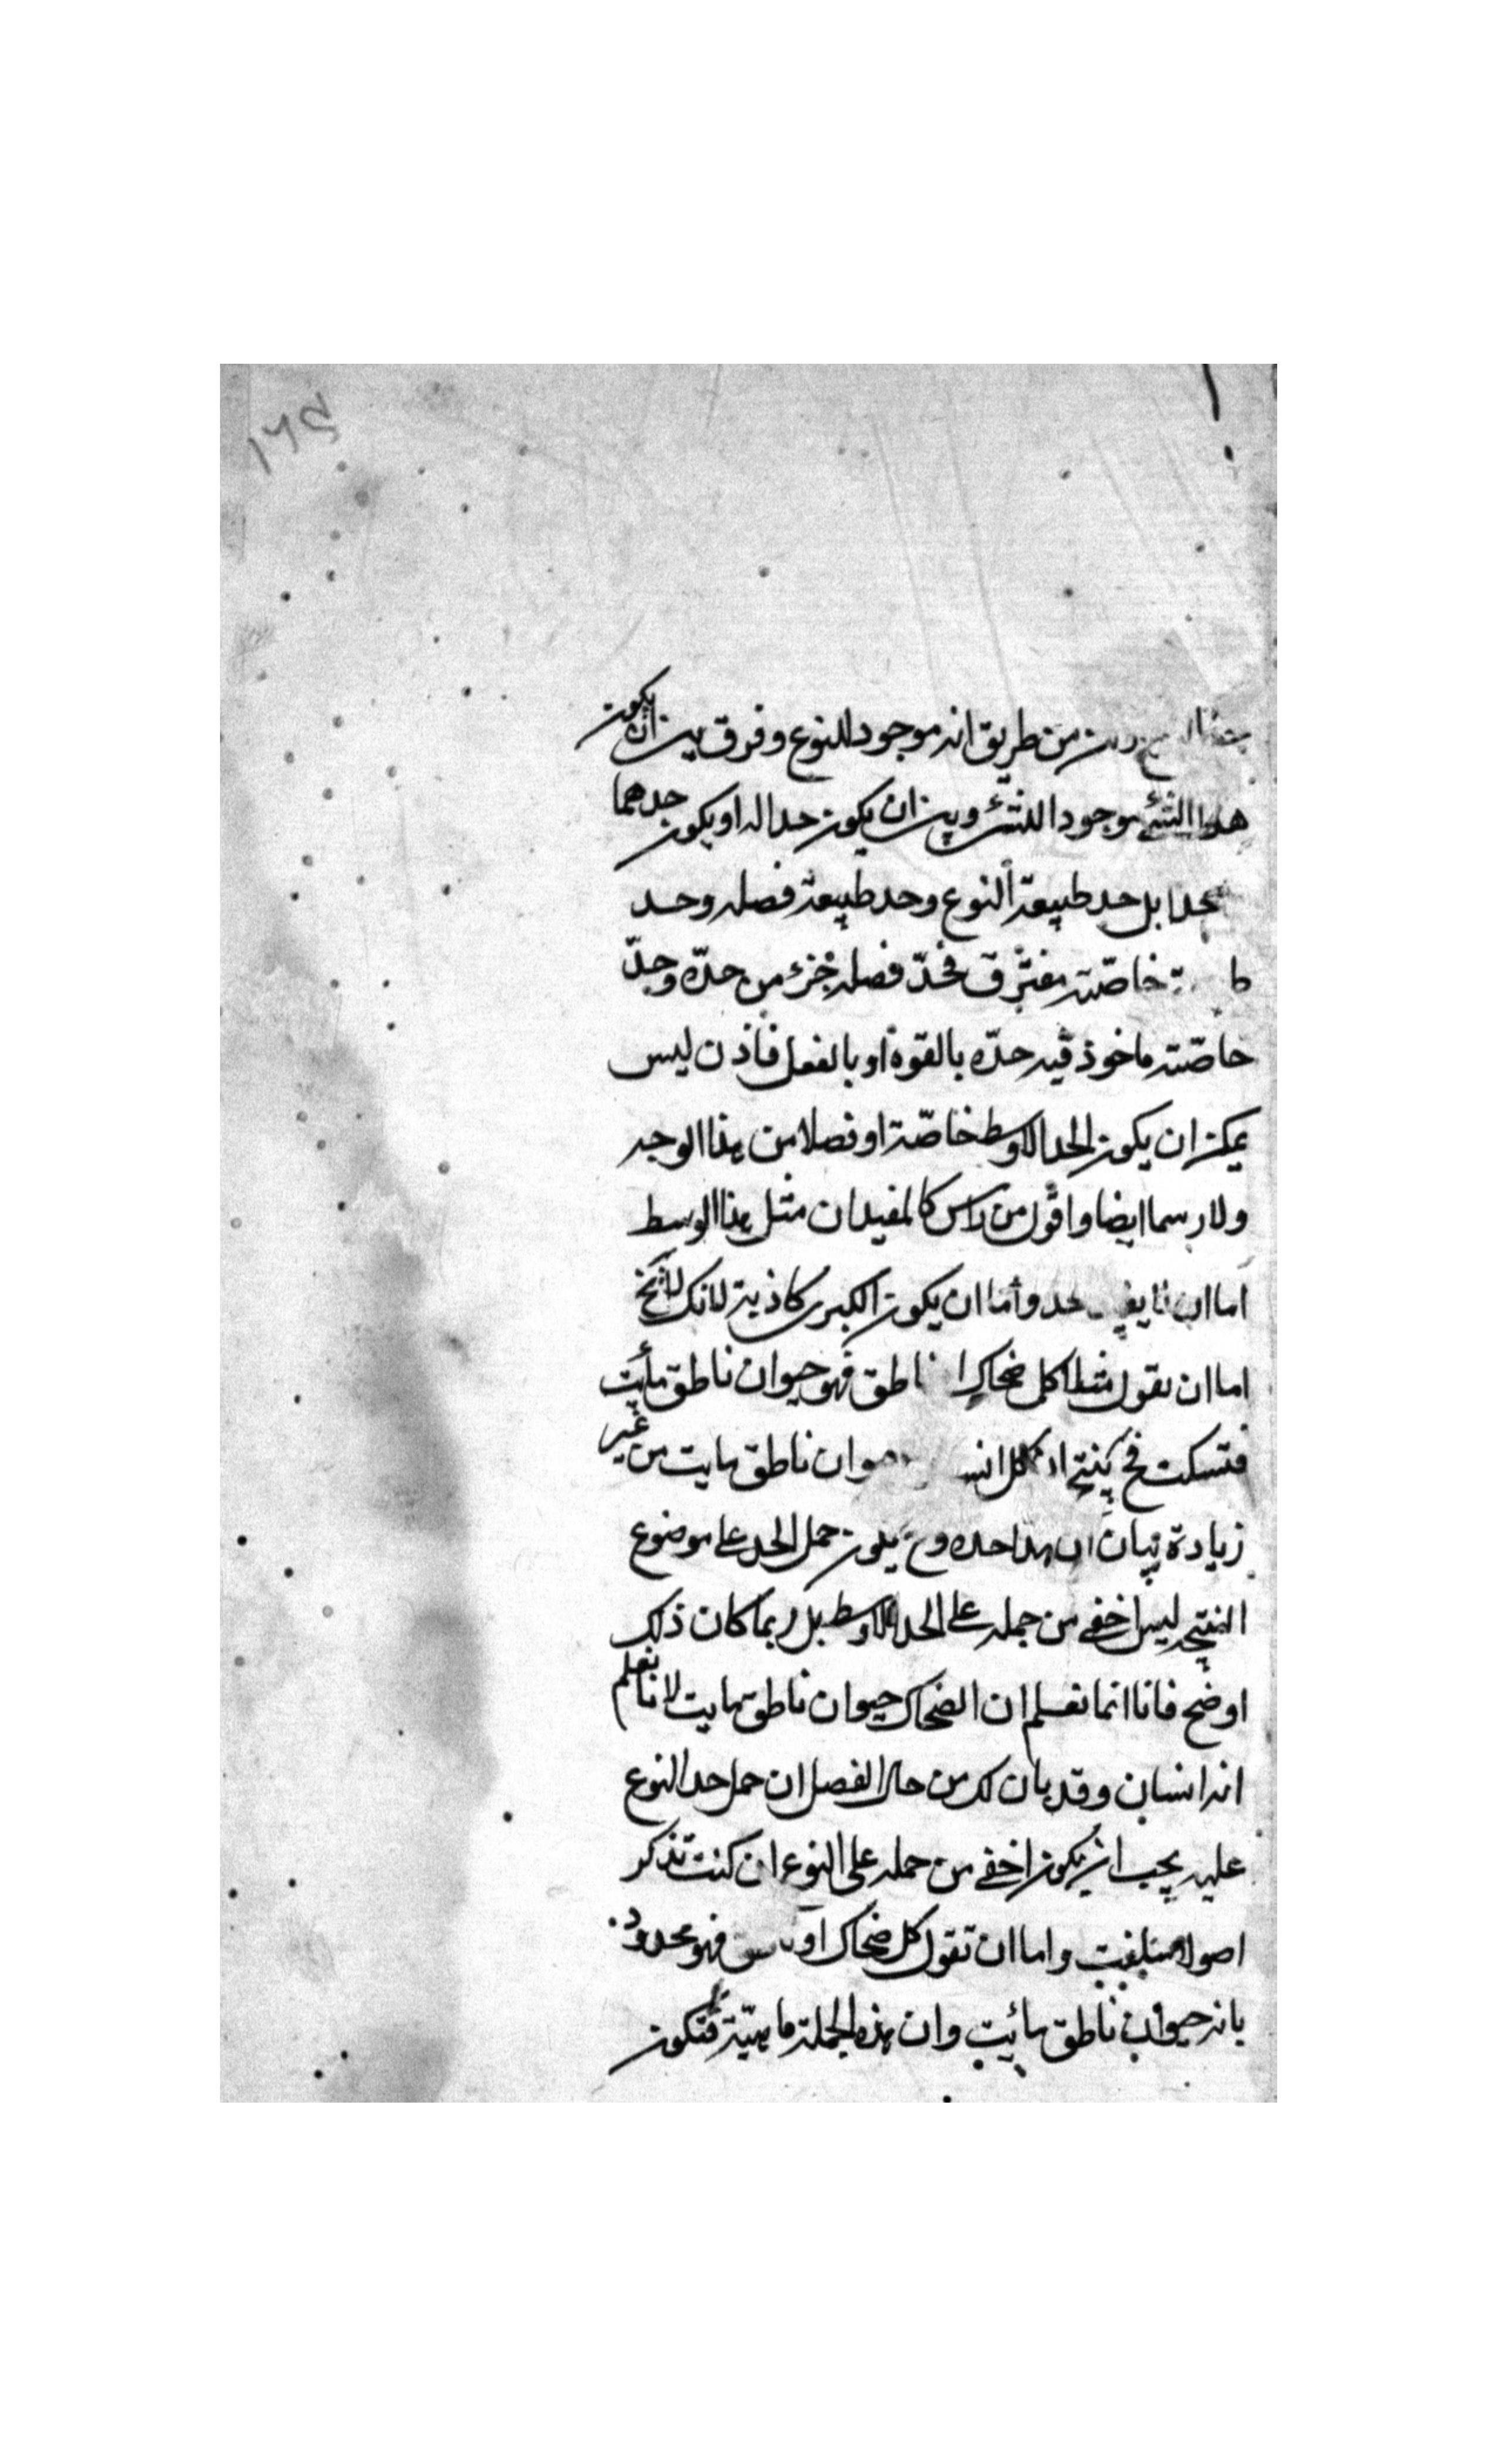 ١٦٩
من طريق انه موجود للنوع وفرق بين ان يكون
هذا الشئ موجودا للشئ وبين ان يكون حدا له او يكون حدهما
بل حد طبيعة النوع وحد طبيعة فصله وحد
خاصته مفترق فحدّ فصله جزء من حدّه وحدّ
خاصّته ماخوذ فيه حدّه بالقوة او بالفعل فاذن ليس
يمكن ان يكون الحد الاوسط خاصّة او فصلا من هذا الوجه
ولا رسما ايضا واقول من راس كالمفيد ان مثل هذا الوسط
اما ان حد واما ان يكون الكبرى كاذبة لانك لا تخ
اما ان تقول مثلا كل ضحاك ناطق فهو حيوان ناطق مائت
فتسكت فح ينتج ان كل ناطق مايت من غير
زيادة بيان ان هذا حده وح يكون حمل الحد على موضوع
النتيجه ليس اخفى من حمله على الحد الاوسط بل ربما كان ذلك
اوضح فانا انما نعلم ان الضحاك حيوان ناطق مايت لانا نعلم
انه انسان وقد بان لك من حال الفصل ان حمل حد النوع
عليه يجب ان يكون اخفى من حمله على النوع ان كنت تذكر
اصولا سلفت واما ان تقول كل ضحاك او فهو محدود
بانه حيوان ناطق مائت وان هذه الجملة ماهيّته فتكون